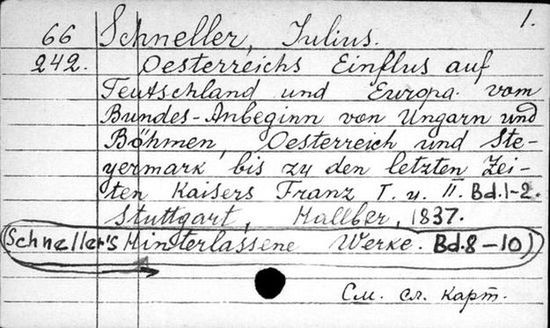 1.
66 Schneller, Julius.
242. Oesterreichs Einflus auf
Teutschland und Europa vom
Bundes-Anbeginn von Ungarn und
Böhmen, Oesterreich und Ste-
yermark, bis zu den letzten Zei-
ten Kaisers Franz I. u. II. Bd.1-2.
Stuttgart, Hallber, 1837.
(Schneller's Hinterlassene Werke. Bd.8-10)
См. сл. карт.